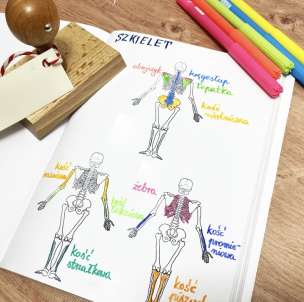 SZKIELET
obojczyk
kręgosłup
łopatka
kość
miedniczna
kość
ramienna
kość
łokciowa
żebra
kość
promie-
niowa
kość
strzałkowa
kość